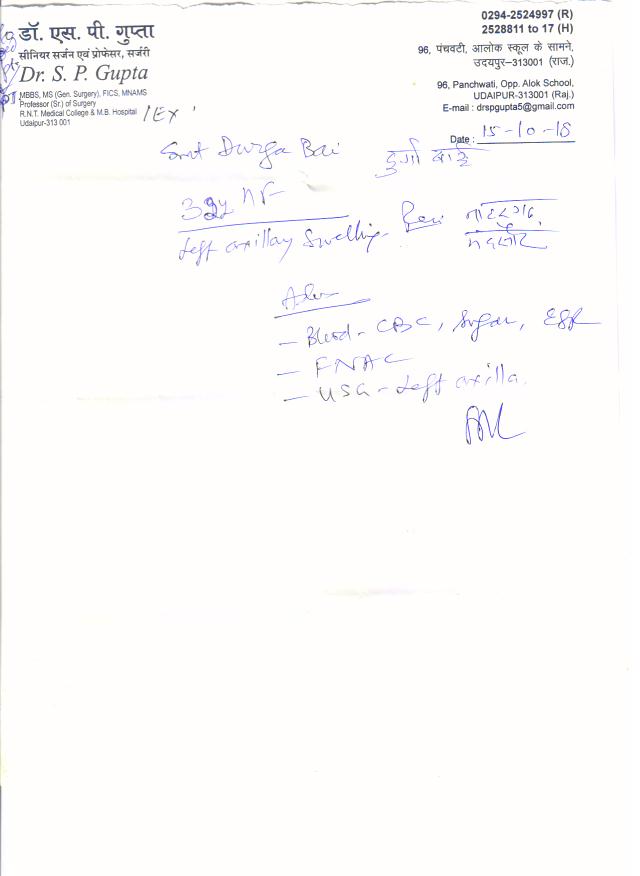 डॉ. एस. पी. गुप्ता
सीनियर सर्जन एवं प्रोफेसर, सर्जरी
Dr. S. P. Gupta
MBBS, MS (Gen. Surgery), FICS, MNAMS
Professor (Sr.) of Surgery
R.N.T. Medical College & M.B. Hospital
Udaipur-313 001
/Ex
0294-2524997 (R)
2528811 to 17 (H)
96, पंचवटी, आलोक स्कूल के सामने,
उदयपुर–313001 (राज.)
96, Panchwati, Opp. Alok School,
UDAIPUR-313001 (Raj.)
E-mail : drspgupta5@gmail.com
Date : 15-10-18
Smt Durga Bai दुर्गा बाई
Left axillary Swelling
Adv
- Blood - CBC, Sugar, ESR
- FNAC
- USG - Left axilla.